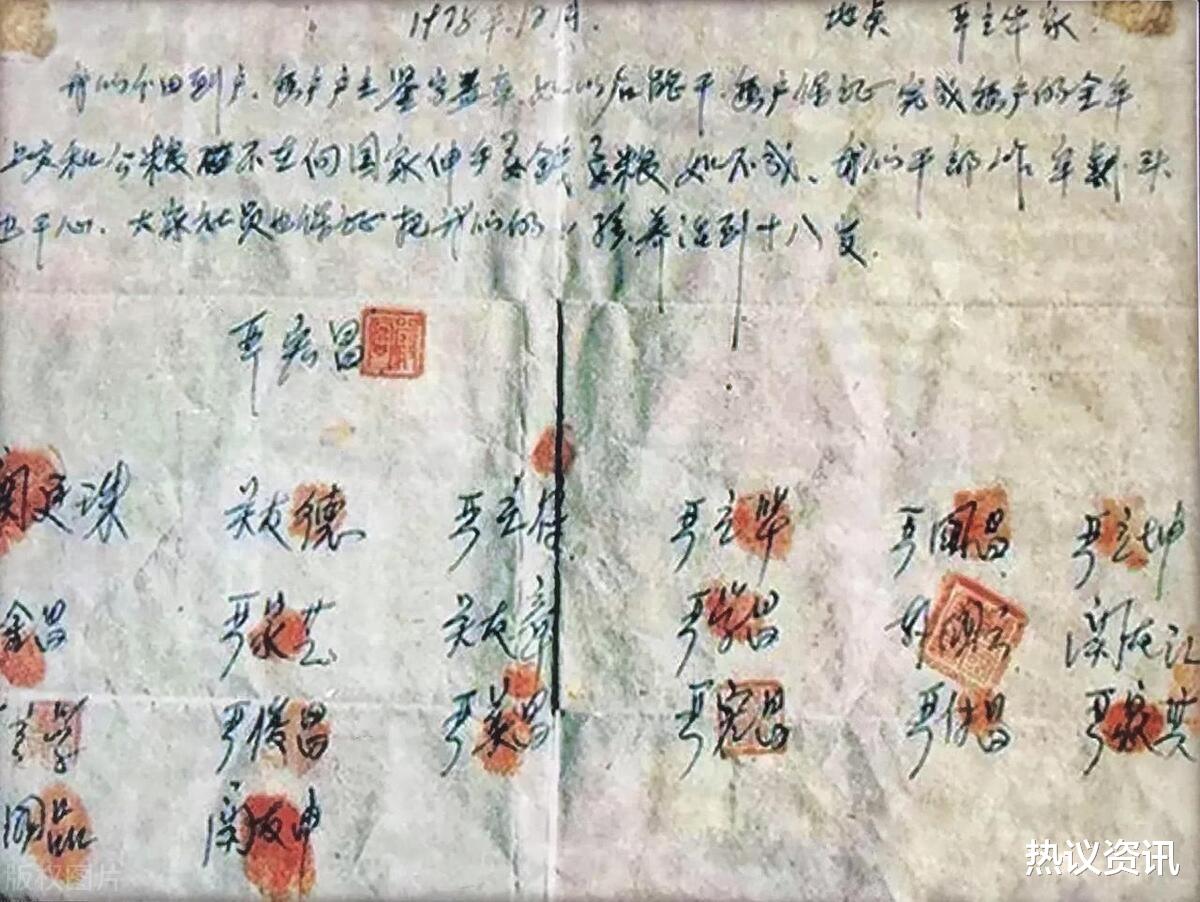 1978年12月. 地点 严立华家.
我们分田到户.每户户主签字盖章.如以后能干.每户保证完成每户的全年
上交和公粮不在向国家伸手要钱要粮如不成.我们干部作牢刹头
也干心.大家社员也保证把我们的小孩养活到十八岁.
严宏昌
关廷珠 关友德 严立符 严立华 严国昌 严立坤
金昌 严家芝 关友章 严学昌 国云 关友江
立学 严俊昌 严美昌 严宏昌 严付昌 严家其
国品 关友申
版权图片
热议资讯